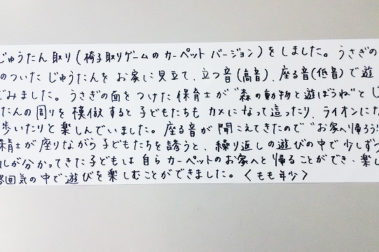 じゅうたん取り(椅子取りゲームのカーペットバージョン)をしました。うさぎの
のついたじゅうたんをお家に見立て、立つ音(高音)、座る音(低音)で遊
でみました。うさぎの面をつけた保育士が"森の動物と遊ぼうね"とじ
たんの周りを模倣すると子どもたちもカメになって這ったり、ライオンにな
歩いたりと楽しんでいました。座る音が聞こえてきたので"お家へ帰ろう
保育士が座りながら子どもたちを誘うと、繰り返しの遊びの中で少しずつ
しが分かってきた子どもは自らカーペットのお家へと帰ることができ、楽し
雰囲気の中で遊びを楽しむことができました。〈もも年少〉